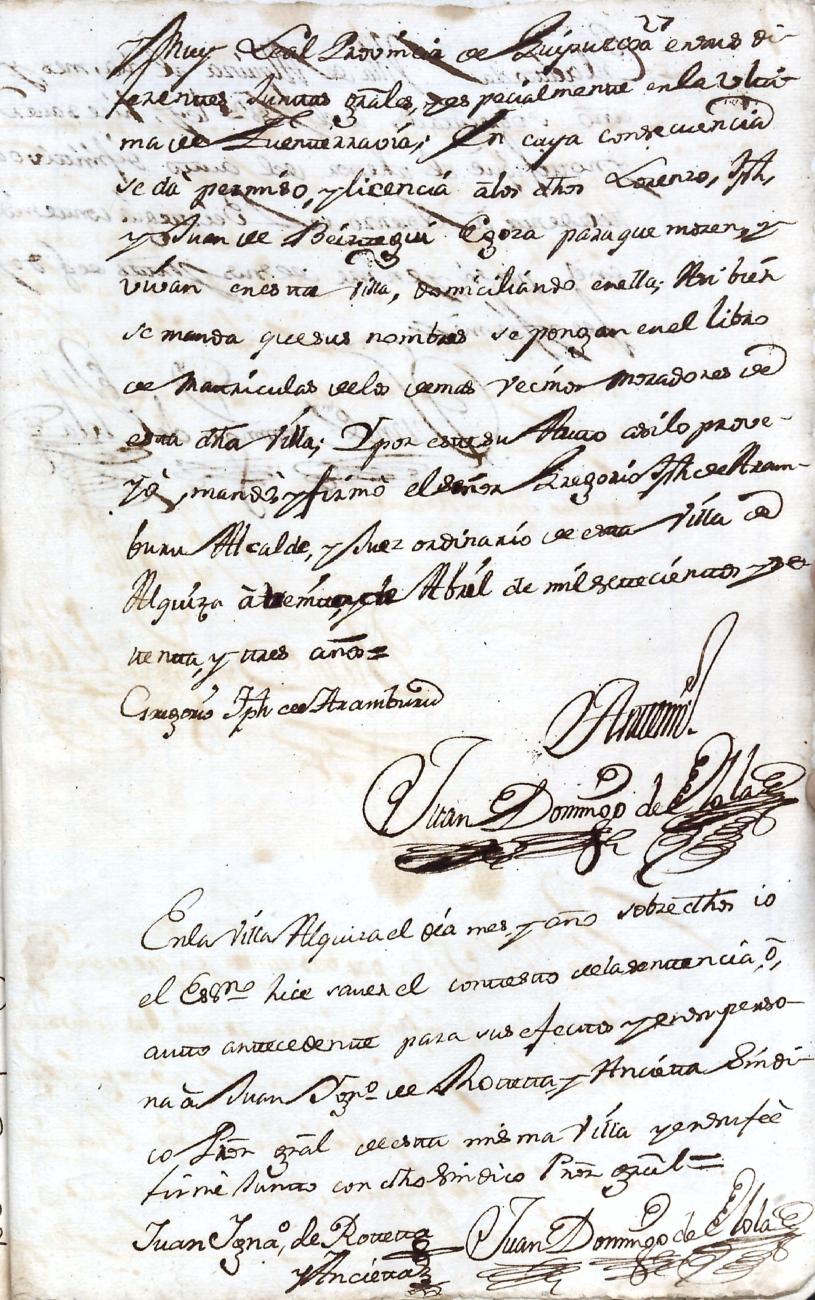 27
y Muy Leal Provincia de Guipuzcoa en sus di-
ferentes Juntas grales, y especialmente en la ulti-
ma de Fuenterravia; En cuya consecuencia
se da permiso, y licencia a los dhos Lorenzo, Jph,
y Juan de Beiztegui Egoza para que moren, y
vivan en esta Villa, domiciliando en ella; Asi bien
se manda que sus nombres se pongan en el libro
de Matriculas de los demas vecinos moradores de
esta dha Villa; Y por este su Auto asi lo prove-
yò, mandò, y firmò el señor Gregorio Jph de Aram-
buru Alcalde, y Juez ordinario de esta Villa de
Alquiza à veinte, de Abril de mil setecientos y se-
tenta, y tres años=
Gregorio Jph de Aramburu
Antemi
Juan Domingo de Olola
En la Villa Alquiza el dia mes, y año sobre dhos io
el Essno hice saver el contesto de la sentencia, ò,
auto antecedente para sus efectos y en su perso-
na à Juan Ygno de Rotetta, y Ancietta Sindi-
co Pror gral de esta misma Villa y en su feè
firmè Junto con dho Sindico Pror gral=
Juan Ygnao de Rotetta
y Ancietta
Juan Domingo de Olola